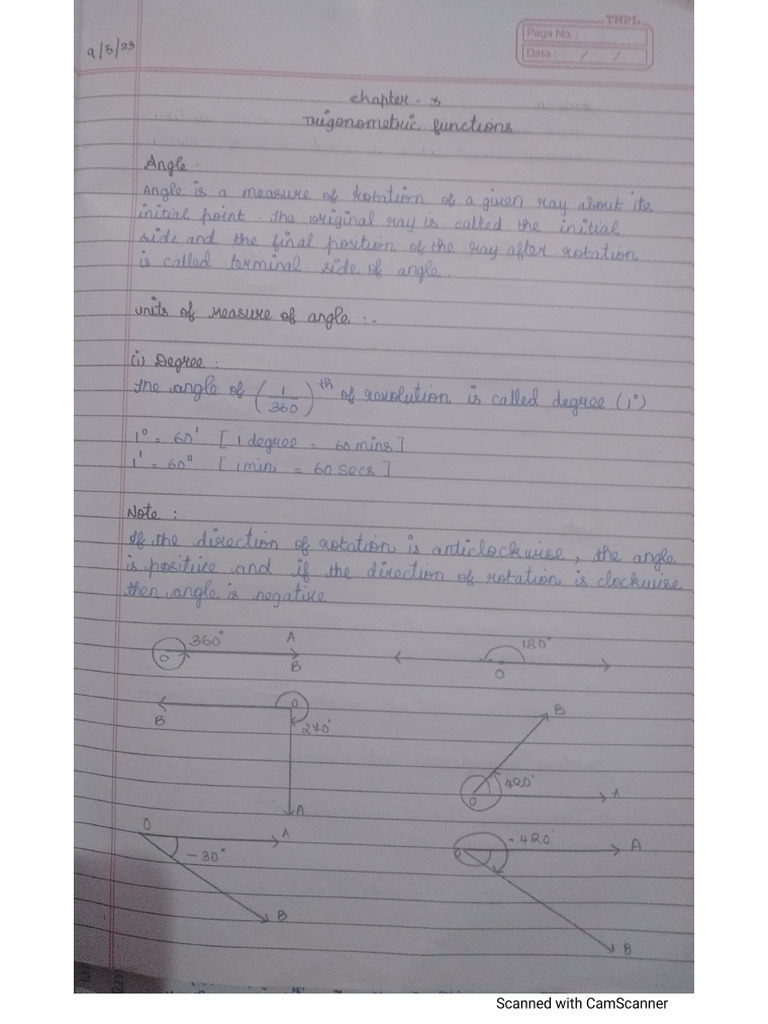 THPL
Page No. :
Date : / /
9/5/23
Chapter - 3
Trigonometric functions
Angle.
Angle is a measure of rotation of a given ray about its
initial point. The original ray is called the initial
side and the final position of the ray after rotation
is called terminal side of angle.
Units of measure of angle :-
(i) Degree :
The angle of (1/360)th of revolution is called degree (1°)
1° = 60' [1 degree = 60 mins]
1' = 60" [1 min = 60 secs]
Note :
If the direction of rotation is anticlockwise, the angle
is positive and if the direction of rotation is clockwise
then angle is negative
O 360° A B
180° O
B O 270° A
B 400° O A
O A -30° B
O -420 A B
Scanned with CamScanner